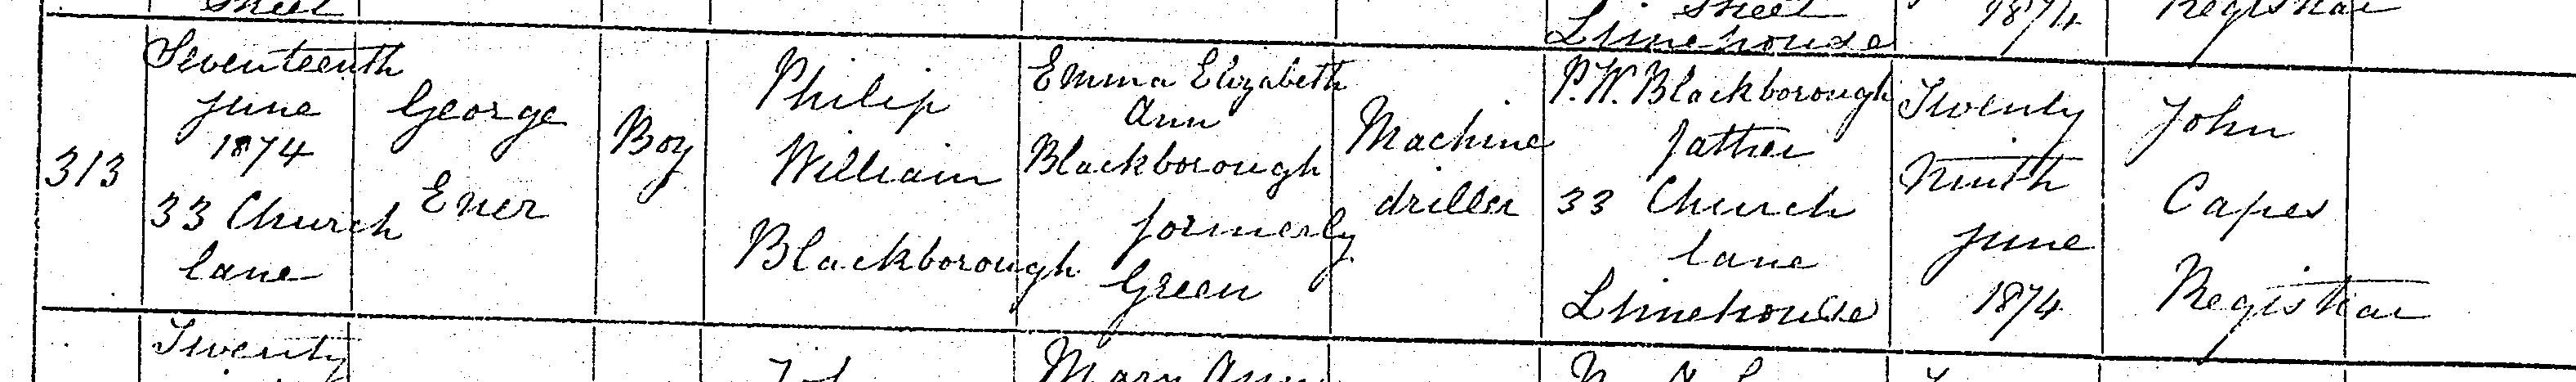 Street
Street
Limehouse
1874
Registrar
313
Seventeenth
June
1874
33 Church
lane
George
Ener
Boy
Philip
William
Blackborough
Emma Elizabeth
Ann
Blackborough
formerly
Green
Machine
driller
P. W. Blackborough
father
33 Church
lane
Limehouse
Twenty
Ninth
June
1874
John
Capes
Registrar
Twenty
Mary Ann